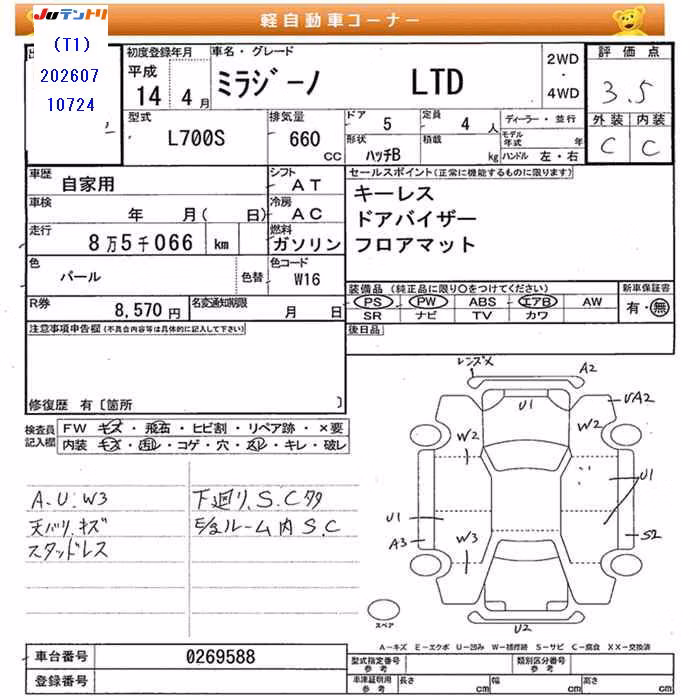 Juテントリ
軽自動車コーナー
(T1)
202607
10724
初度登録年月
平成
14 4月
車名・グレード
ミラジーノ LTD
2WD
・
4WD
評価点
3.5
外装 内装
C C
型式
L700S
排気量
660
cc
ドア
5
定員
4 人
形状
ハッチB
積載
kg
ディーラー・並行
モデル年式 年
ハンドル 左・右
車歴
自家用
シフト
AT
車検
年 月( 日)
冷房
AC
走行
8万5千066 km
燃料
ガソリン
色
パール
色替
色コード
W16
R券
8,570円
名変通知期限
月 日
セールスポイント(正常に機能するものに限ります)
キーレス
ドアバイザー
フロアマット
装備品(純正品に限り〇をつけてください)
PS PW ABS エアB AW
SR ナビ TV カワ
新車保証書
有・無
後日品
注意事項申告欄(不具合内容等は具体的に記入して下さい)
修復歴 有〔箇所 〕
検査員記入欄
FW キズ・飛石・ヒビ割・リペア跡・×要
内装 キズ・汚れ・コゲ・穴・スレ・キレ・破レ
A.U.W3
天バリ.キズ
スタッドレス
下廻り.S.C
ルーム内S.C
レンズX
A2
U1
UA2
W2
W2
U1
U1
A3
W3
S2
U2
スペア
A-キズ E-エクボ U-凹み W-補修跡 S-サビ C-腐食 XX-交換済
車台番号
0269588
登録番号
型式指定番号
参考
類別区分番号
参考
車庫証明用
参考
長さ cm
幅 cm
高さ cm